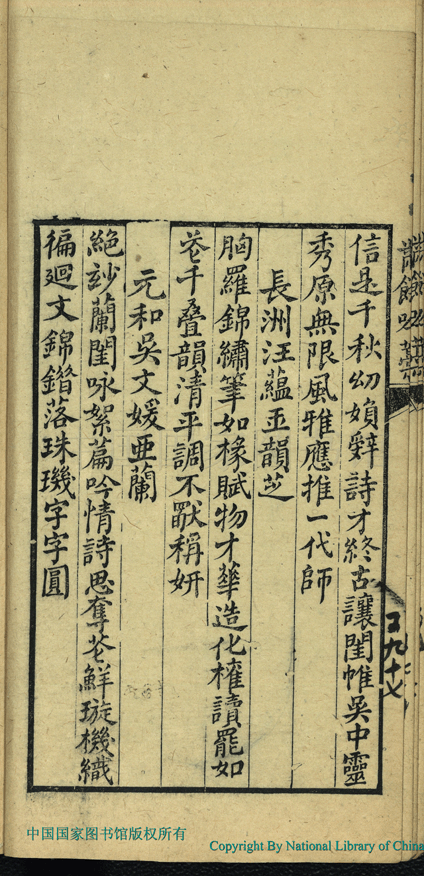 信是千秋幼媍辤詩才終古讓閨帷吳中靈
秀原無限風雅應推一代師
長洲汪蘊玉韻芝
胸羅錦繡筆如椽賦物才華造化權讀罷如
花千疊韻清平調不厭稱妍
元和吳文媛亜蘭
絕玅蘭閨咏絮篇吟情詩思奪花鮮璇機織
徧廻文錦錯落珠璣字字圓
中国国家图书馆版权所有
Copyright By National Library of China